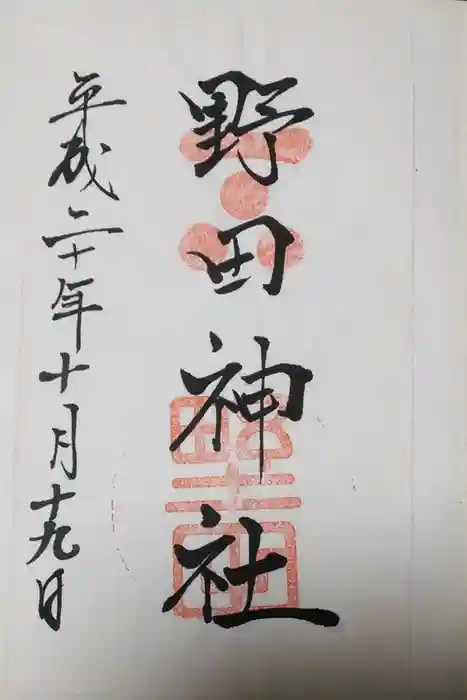 野田神社
平成二十年十月十九日